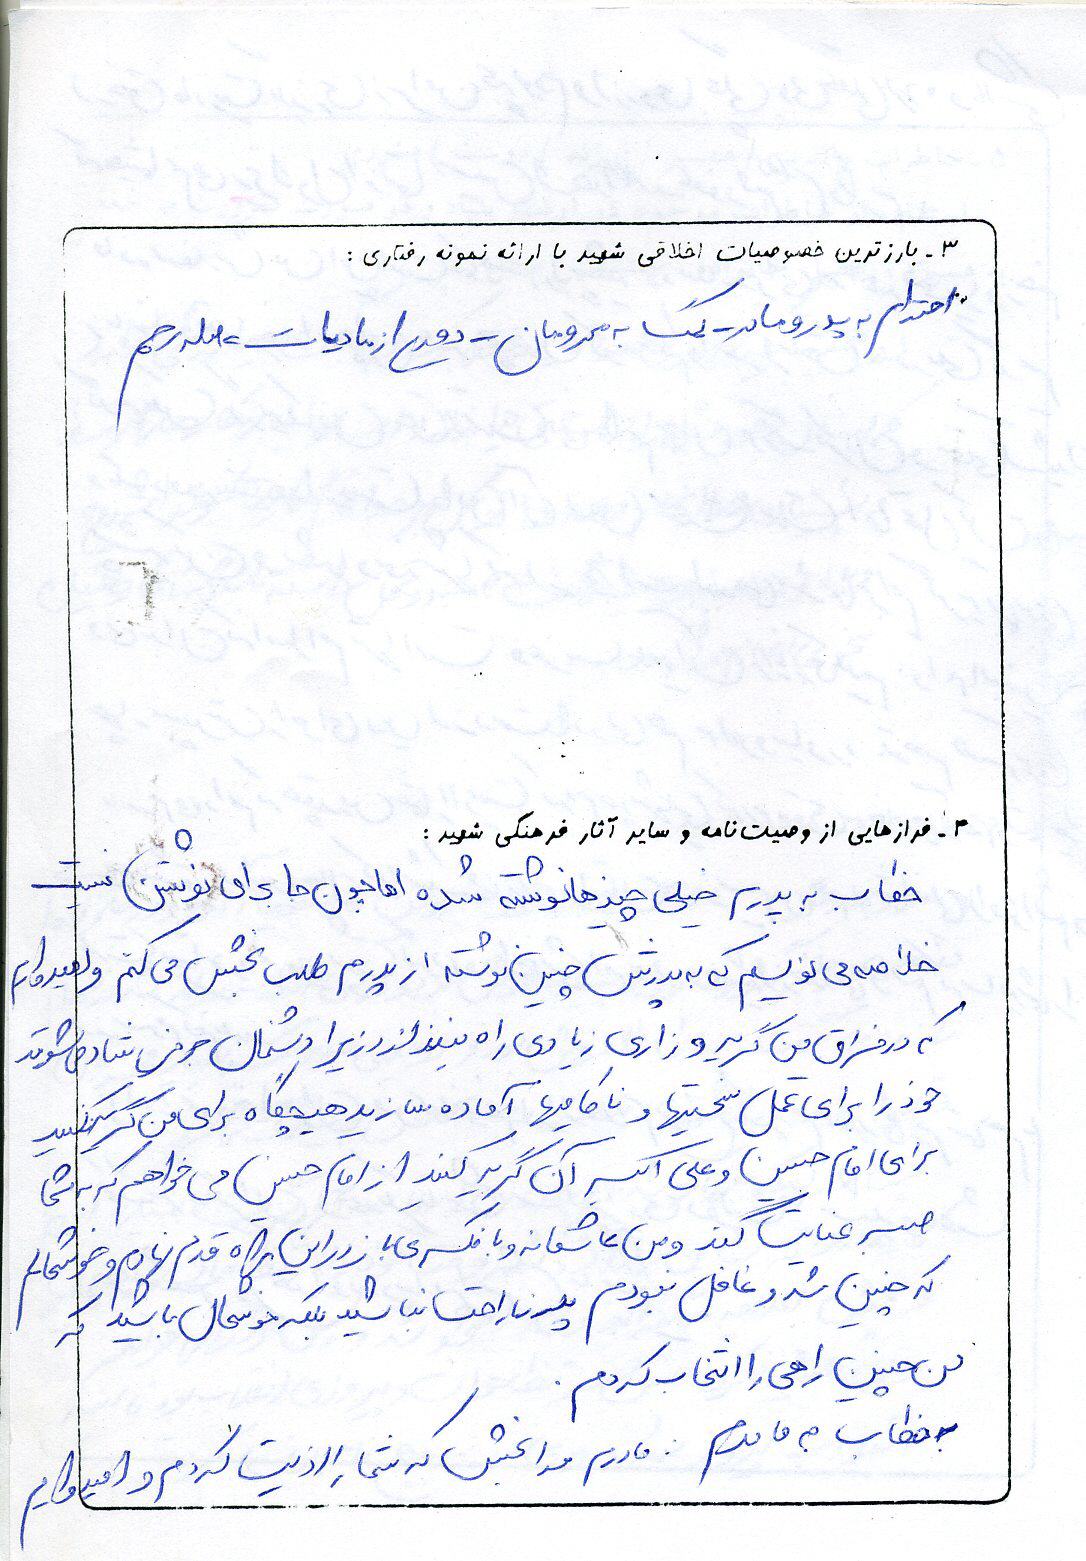 ۳ـ بارزترین خصوصیات اخلاقی شهید با ارائه نمونه رفتاری :
احترام به پدر و مادر ـ کمک به محرومان ـ دوری از مادیات ـ صله رحم
۴ـ فرازهایی از وصیت‌نامه و سایر آثار فرهنگی شهید :
خطاب به پدرم خیلی چیزها نوشته شده اما چون جا برای نوشتن نیست
خلاصه می نویسم که به پدرش چنین نوشته از پدرم طلب بخشش می کنم و امیدوارم
که در فراق من گریه و زاری زیادی راه نیندازند زیرا دشمنان شاد می شوند
خود را برای تحمل سختیها و ناکامیها آماده سازید هیچگاه برای من گریه نکنید
برای امام حسین و علی اکبر آن گریه کنید از امام حسین می خواهم که به شما
صبر عنایت کند و من عاشقانه و با فکری باز در این راه قدم نهادم و خوشحالم
که چنین شد و غافل نبودم پدر ناراحت نباشید بلکه خوشحال باشید که
من چنین راهی را انتخاب کردم .
خطاب به مادرم : مادرم مرا ببخش که شما را اذیت کردم و امیدوارم